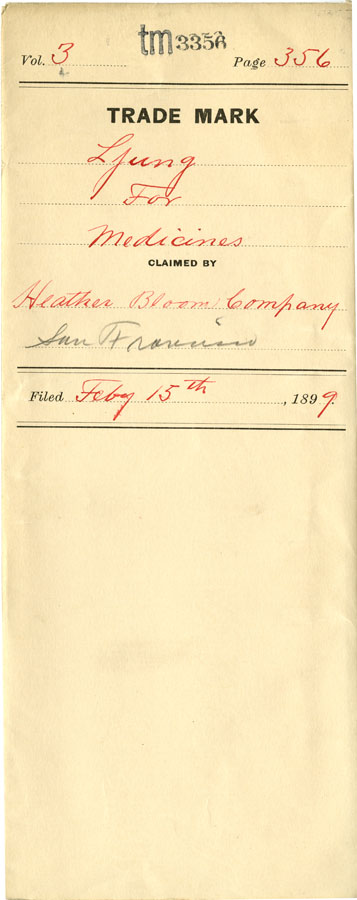 tm 3356
Vol. 3 Page 356
TRADE MARK
Ljung
For
Medicines
CLAIMED BY
Heather Bloom Company
San Francisco
Filed Feby 15th, 1899.